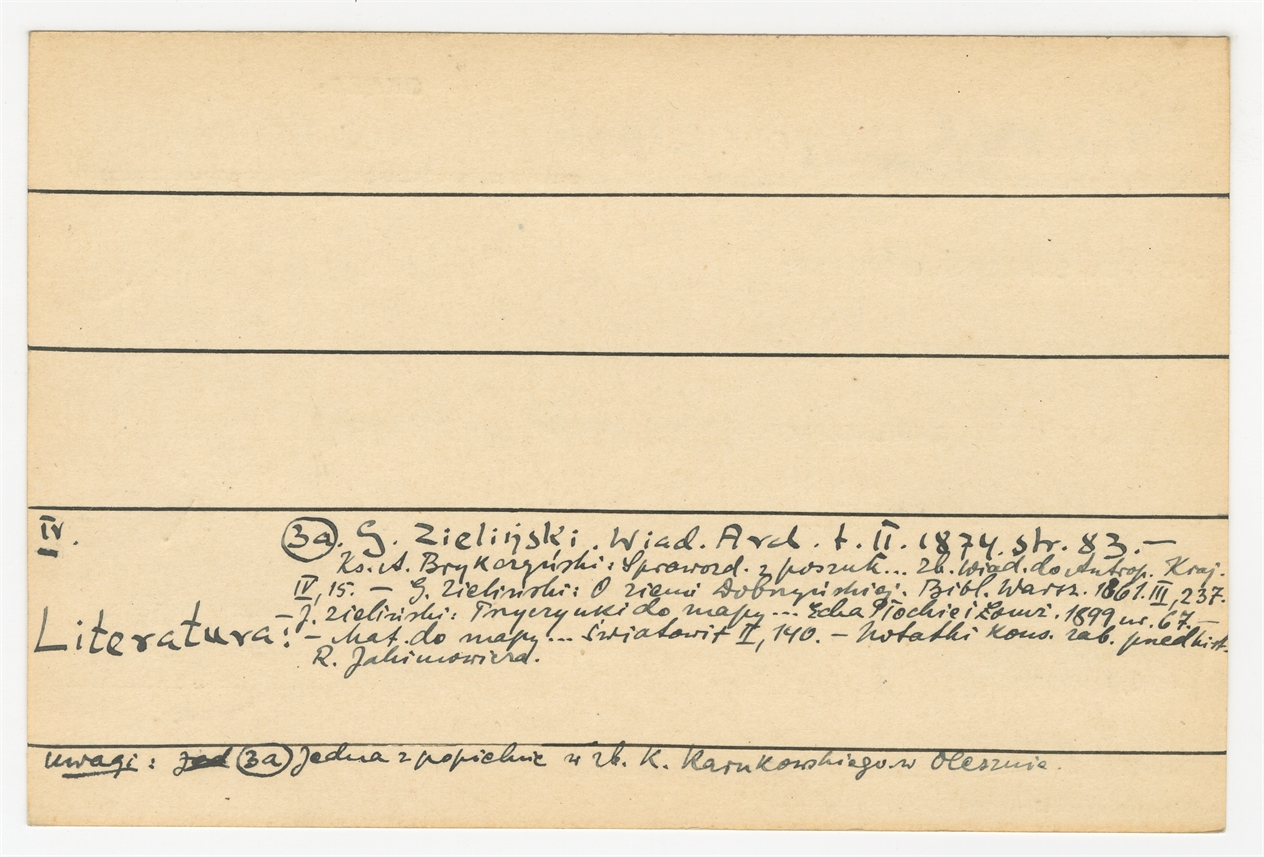 IV. (3a). G. Zieliński. Wiad. Arch. t. II. 1874. str. 83. —
Ks. A. Brykczyński: Sprawozd. z poszuk... Zb. Wiad. do Antrop. Kraj.
IV, 15. — G. Zieliński: O ziemi Dobrzyńskiej. Bibl. Warsz. 1861. III, 237.
— J. Zieliński: Przyczynki do mapy... Echa Płockie i Łomż. 1899, nr. 67. —
Literatura: — Mat. do mapy... Światowit II, 140. — Notatki kons. zab. przedhist.
R. Jakimowicza.
uwagi: (3a) Jedna z popielnic w zb. K. Karnkowskiego w Olesznie.